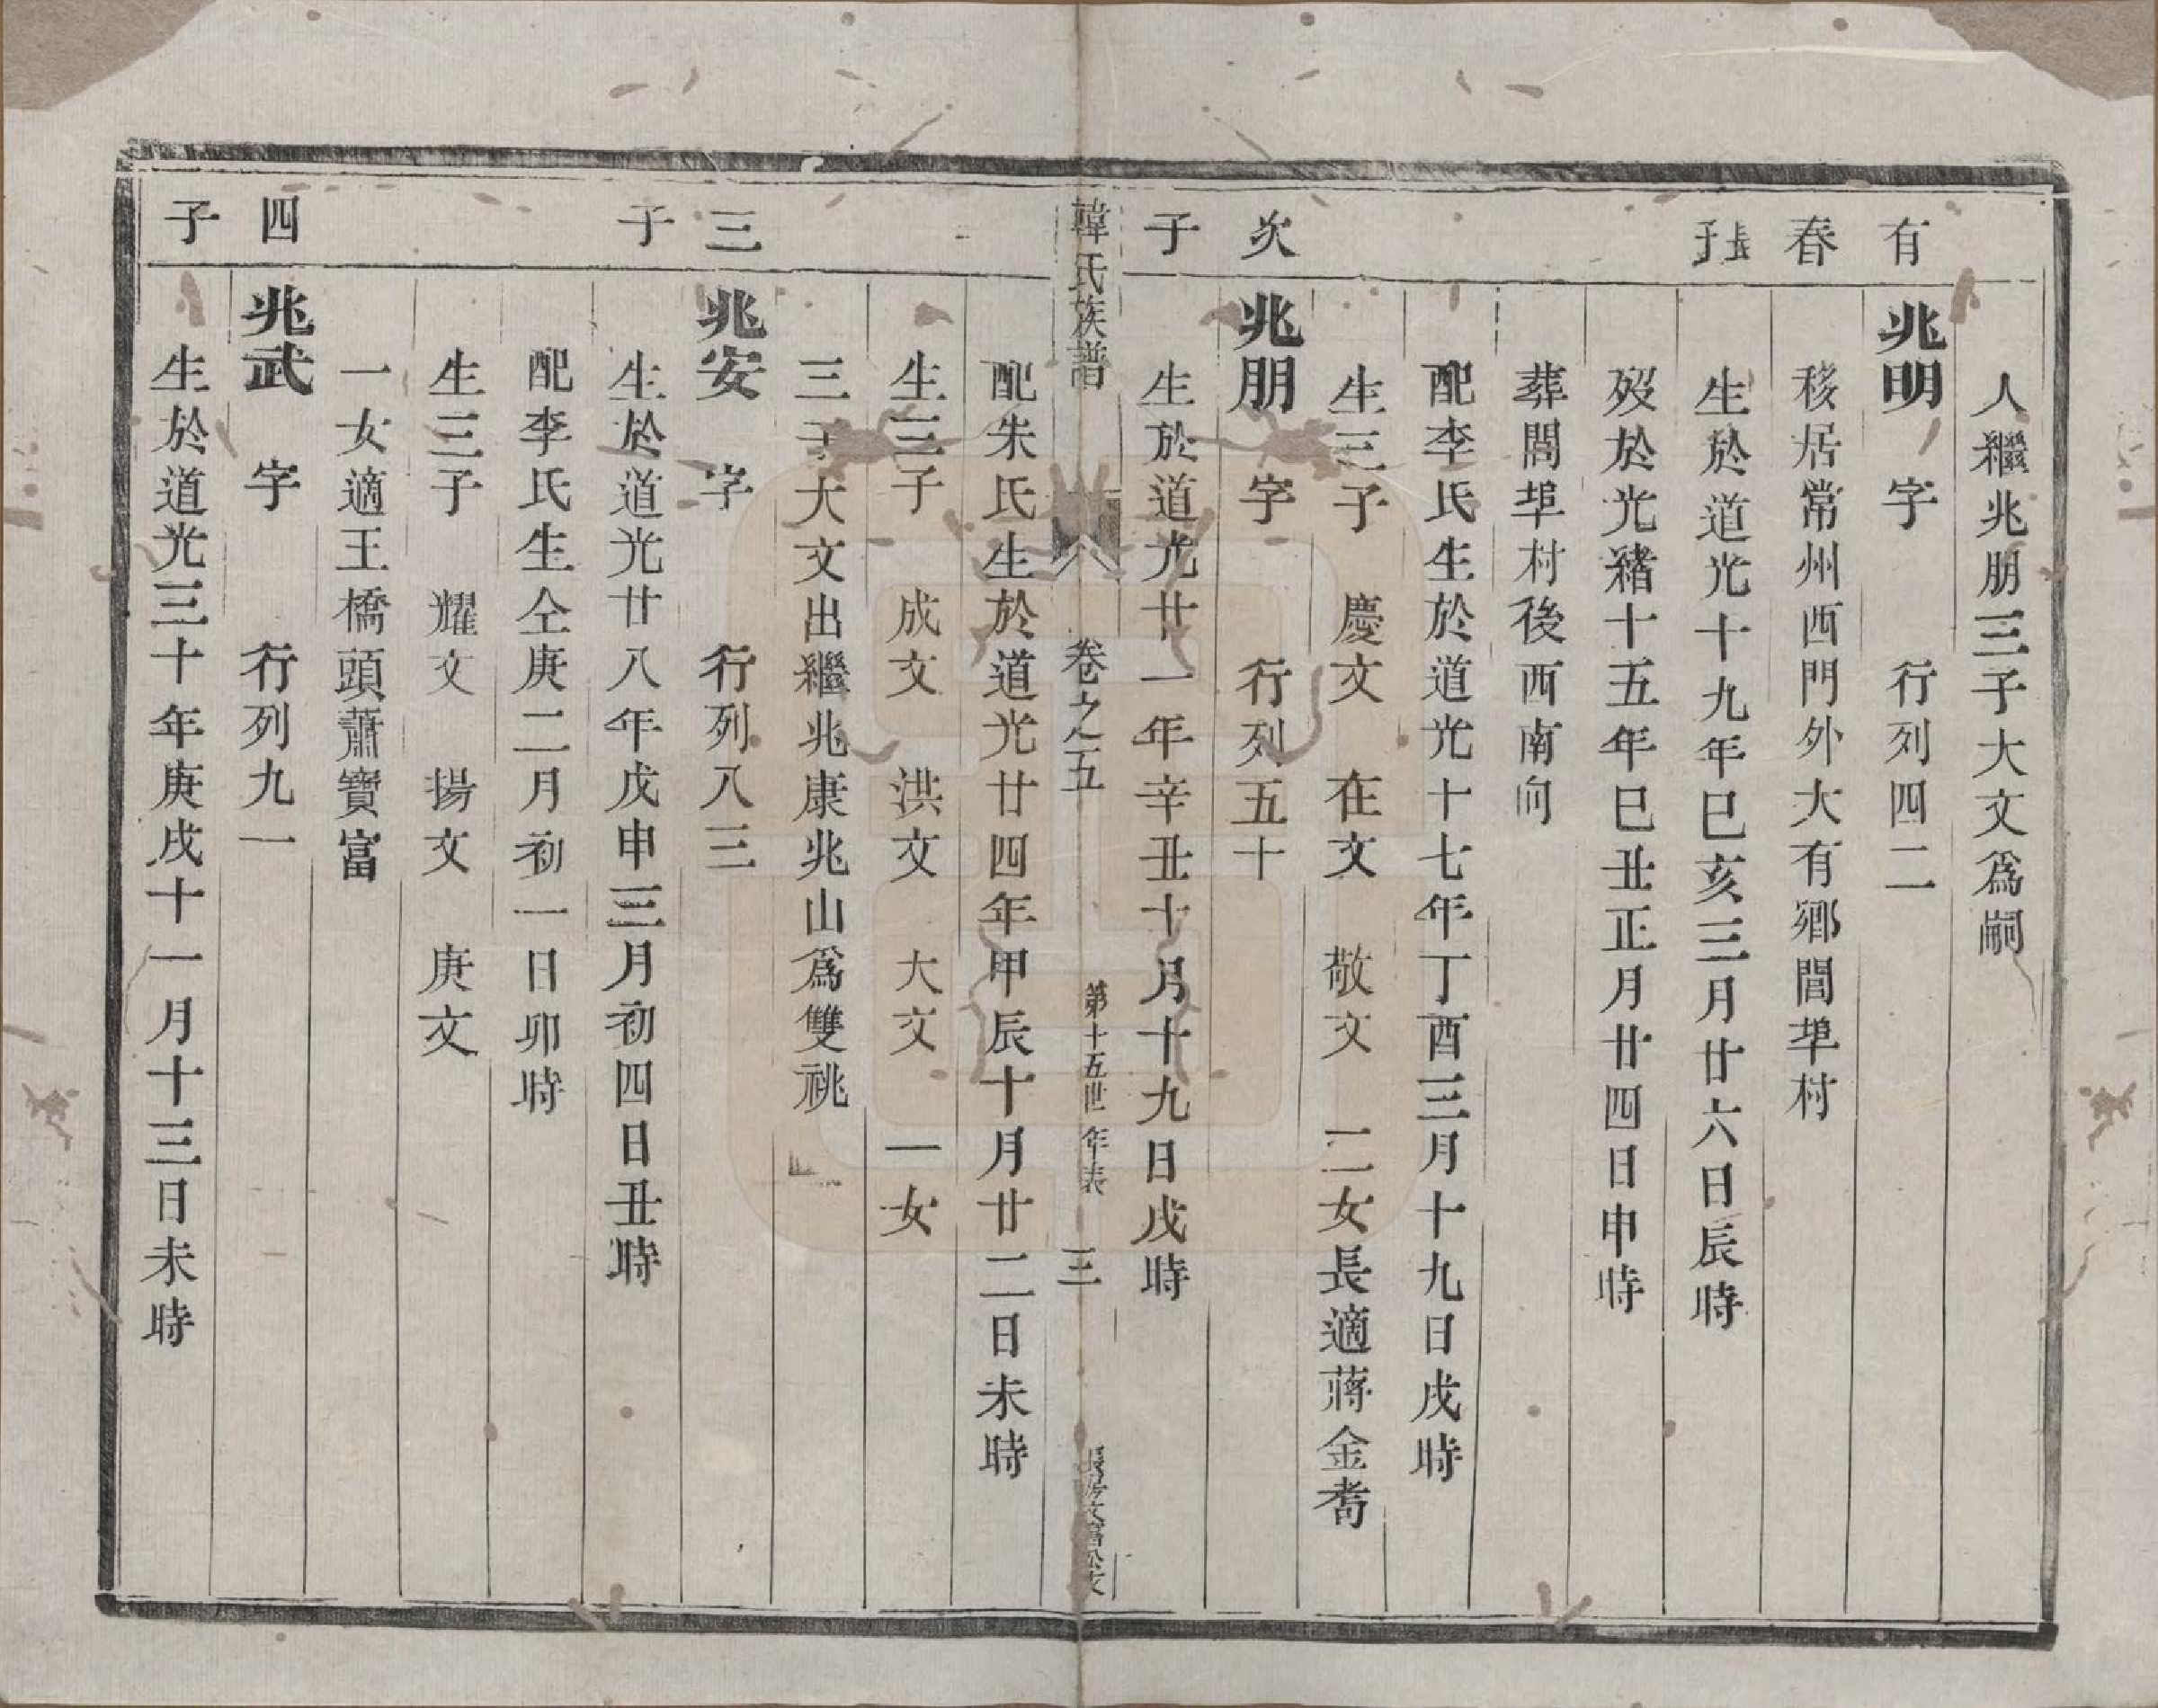 人繼兆朋三子大文爲嗣
有春長子
兆明 字 行列四二
移居常州西門外大有鄉閭埠村
生於道光十九年巳亥三月廿六日辰時
歿於光緒十五年巳丑正月廿四日申時
葬閭埠村後西南向
配李氏生於道光十七年丁酉三月十九日戌時
生三子 慶文 在文 敬文 二女長適蔣金耆
次子
兆朋 字 行列五十
生於道光廿一年辛丑十月十九日戌時
韓氏族譜 卷之五 第十五世 年表 三
配朱氏生於道光廿四年甲辰十月廿二日未時
生三子 成文 洪文 大文 一女
三子大文出繼兆康兆山爲雙祧
三子
兆安 字 行列八三
生於道光廿八年戊申三月初四日丑時
配李氏生仝庚二月初一日卯時
生三子 耀文 揚文 庚文
一女適王橋頭蕭寶富
四子
兆武 字 行列九一
生於道光三十年庚戌十一月十三日未時